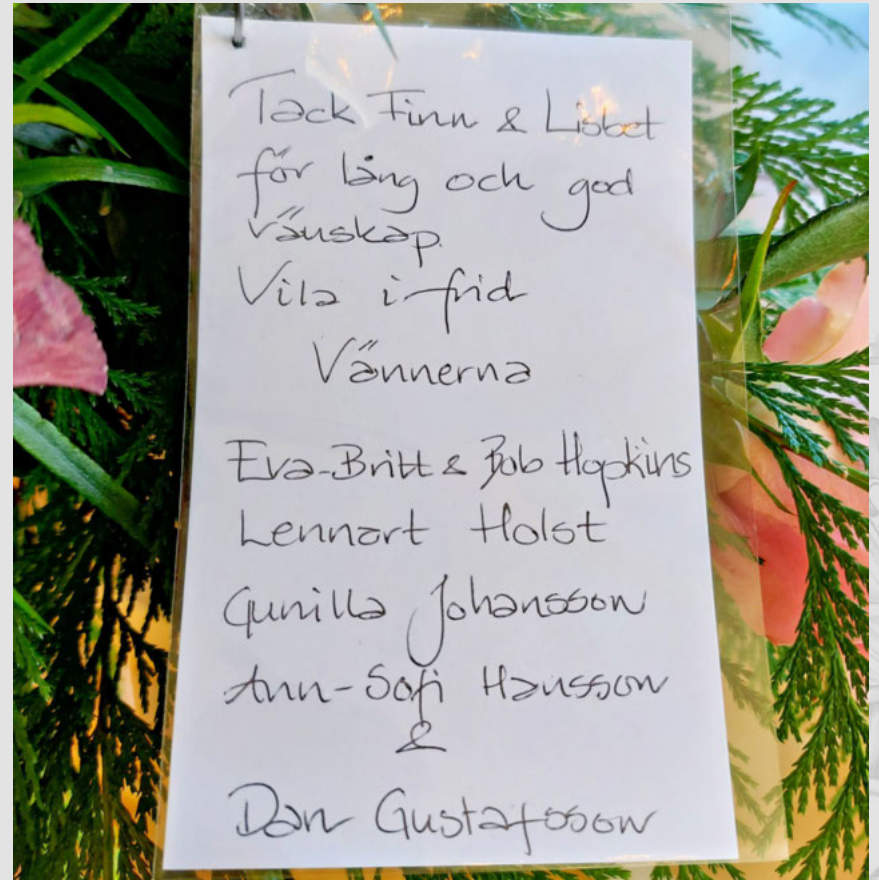 Tack Finn & Lisbet
för lång och god
vänskap.
Vila i frid
Vännerna
Eva-Britt & Bob Hopkins
Lennart Holst
Gunilla Johansson
Ann-Sofi Hansson
&
Dan Gustafsson